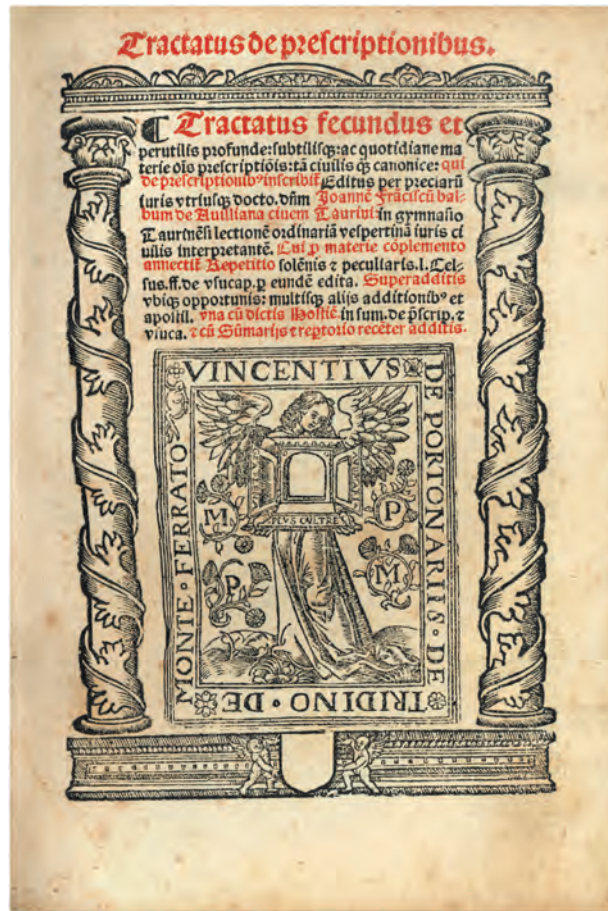 Tractatus de prescriptionibus.
¶ Tractatus fecundus et
perutilis profunde: subtilisq3: ac quotidiane ma
terie oĩs prescriptiõis: tã ciuilis q̃3 canonice: qui
de prescriptionibꝰ inscribit̃ Editus per preciarũ
iuris vtriusq3 docto. dñm Joannẽ Frãciscũ bal-
bum de Auilliana ciuem Taurini: in gymnasio
Taurineñ lectionẽ ordinariã vespertinã iuris ci
uilis interpretantẽ. Cui ꝓ materie cõplemento
annectit̃ Repetitio solẽnis ⁊ peculiaris. l. Cel-
sus. ff. de vsucap. ꝑ eundẽ edita. Superadditis
vbiq3 opportunis: multisq3 alijs additionibꝰ et
apostil. vna cũ dictis Hostieñ. in sum. de p̃scrip. ⁊
vsuca. ⁊ cũ Sũmarijs ⁊ reꝑtorio recẽter additis.
VINCENTIVS
DE PORTONARIIS · DE
TRIDINO · DE
MONTE · FERRATO
M
P
PLVS OVLTRE
P
M